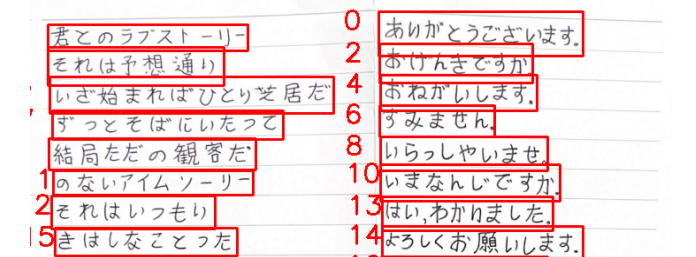 君とのラブストーリー
それは予想通り
いざ始まればひとり芝居だ
ずっとそばにいたって
結局ただの観客だ
1 のないアイムソーリー
2 それはいつもり
15 きはしなことった
0 ありがとうございます.
2 おげんきですか.
4 おねがいします.
6 すみません.
8 いらっしやいませ.
10 いまなんじですか.
13 はい,わかりました.
14 よろしくお願いします.